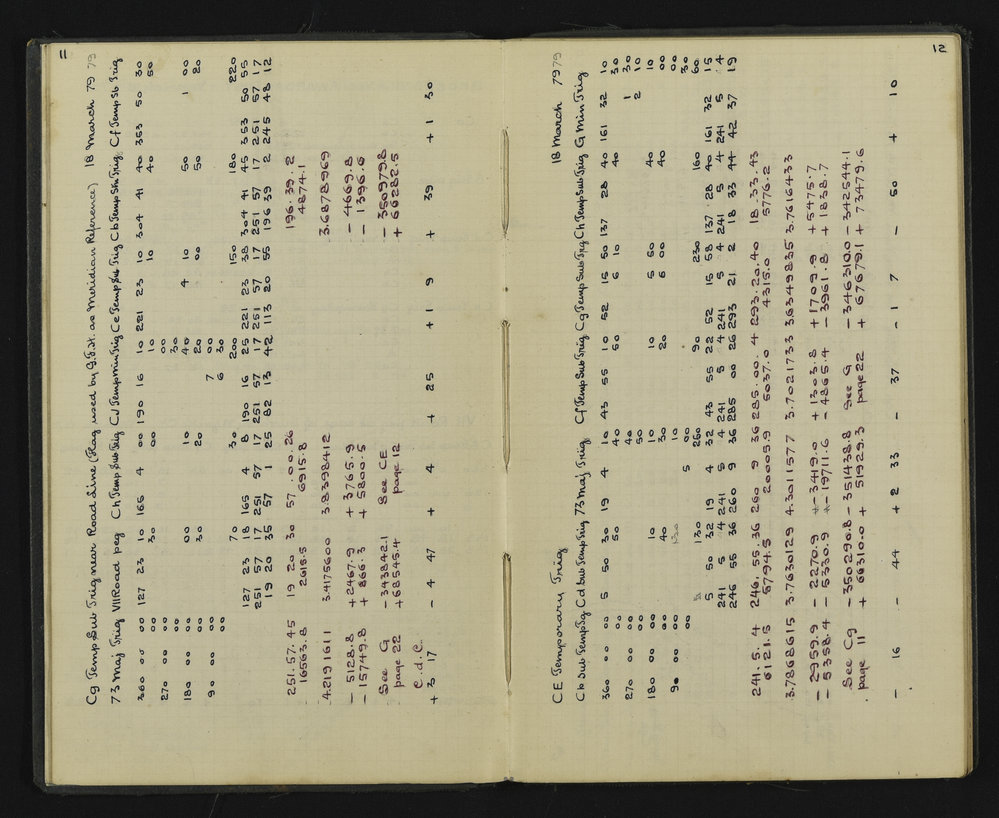 11
Cg Temp Sub Trig near Road Line (Flag used by G.T.H. as Meridian Reference) 18 March 79 79
73 Maj Trig VII Road peg Ch Temp Sub Trig CJ Temp min Trig Ce Temp Sub Trig Cb Temp Stn Trig Cf Temp Sb Trig
360 00 00 127 23 10 165 4 00 190 16 10 221 23 10 304 41 40 353 50 30
00 30 00 10 10 40 50
270 00 00 00
00 30
180 00 00 00 10 40 4 10 50 1 00
00 30 20 20 00 50 20
90 00 00 7 00
00 6 30
70 30 200 150 180 220
127 23 18 165 4 8 190 16 25 221 23 38 304 41 45 353 50 55
251 57 17 251 57 17 251 57 17 251 57 17 251 57 17 251 57 17
19 20 35 57 1 25 82 13 42 113 20 55 196 39 2 245 48 12
251.57.45 19 20 30 57.00.26 196.39.2
16563.8 2615.5 6915.8 4874.1
4.2191611 3.4175600 3.8398412 3.6878969
- 5128.8 +2467.9 +3765.9 - 4669.8
- 15749.8 + 866.3 + 5800.5 - 1396.6
See G -343842.1 See CE - 350979.8
page 22 +68545.4 page 12 + 66282.5
C.d.C.
+ 3 17 - 4 47 + 4 + 25 + 1 9 + 39 + 1 30
12
CE Temporary Trig 18 March 79 79
Cb Sub Temp Tg Cd Sub Temp Trig 73 Maj Trig Cf Temp Sub Trig Cg Temp Sub Trig Ch Temp Sub Trig G Min Trig
360 00 00 5 50 30 19 4 10 43 55 10 52 15 50 137 28 40 161 32 10
00 50 40 50 6 10 40 30
270 00 00 40 1 30
00 50 2 10
180 00 00 10 10 10 5 50 40 10
00 40 30 20 6 00 40 00
90 00 00 130 10 00
00 5 00 30
130 260 90 230 160 60
5 50 32 19 4 32 43 55 22 52 15 58 137 28 40 161 32 15
241 5 4 241 5 4 241 5 4 241 5 4 241 5 4 241 5 4
246 55 36 260 9 36 285 00 26 293 21 2 18 33 44 42 37 19
241.5.4 246.55.36 260 9 36 285.00.4 293.20.40 18.33.43
6121.5 5794.5 20005.9 5037.0 4315.0 5776.2
3.7868615 3.7630129 4.3011577 3.7021733 3.6349835 3.7616433
- 2959.9 - 2270.9 - 3419.0 +1303.8 +1709.9 +5475.7
- 5358.4 - 5330.9 - 19711.6 - 4865.4 - 3961.8 + 1838.7
See Cg -350290.8 - 351438.8 See G - 346310.0 - 342544.1
page 11 + 66310.0 + 51929.3 page 22 + 67679.1 + 73479.6
- 16 - 44 + 2 33 - 37 - 1 7 - 50 + 10